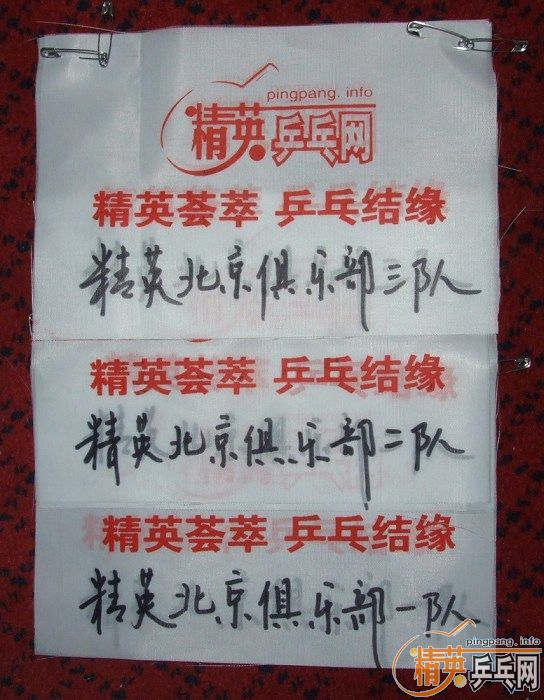 pingpang.info
精英乒乓网
精英荟萃 乒乓结缘
精英北京俱乐部三队
精英荟萃 乒乓结缘
精英北京俱乐部二队
精英荟萃 乒乓结缘
精英北京俱乐部一队
pingpang.info
精英乒乓网